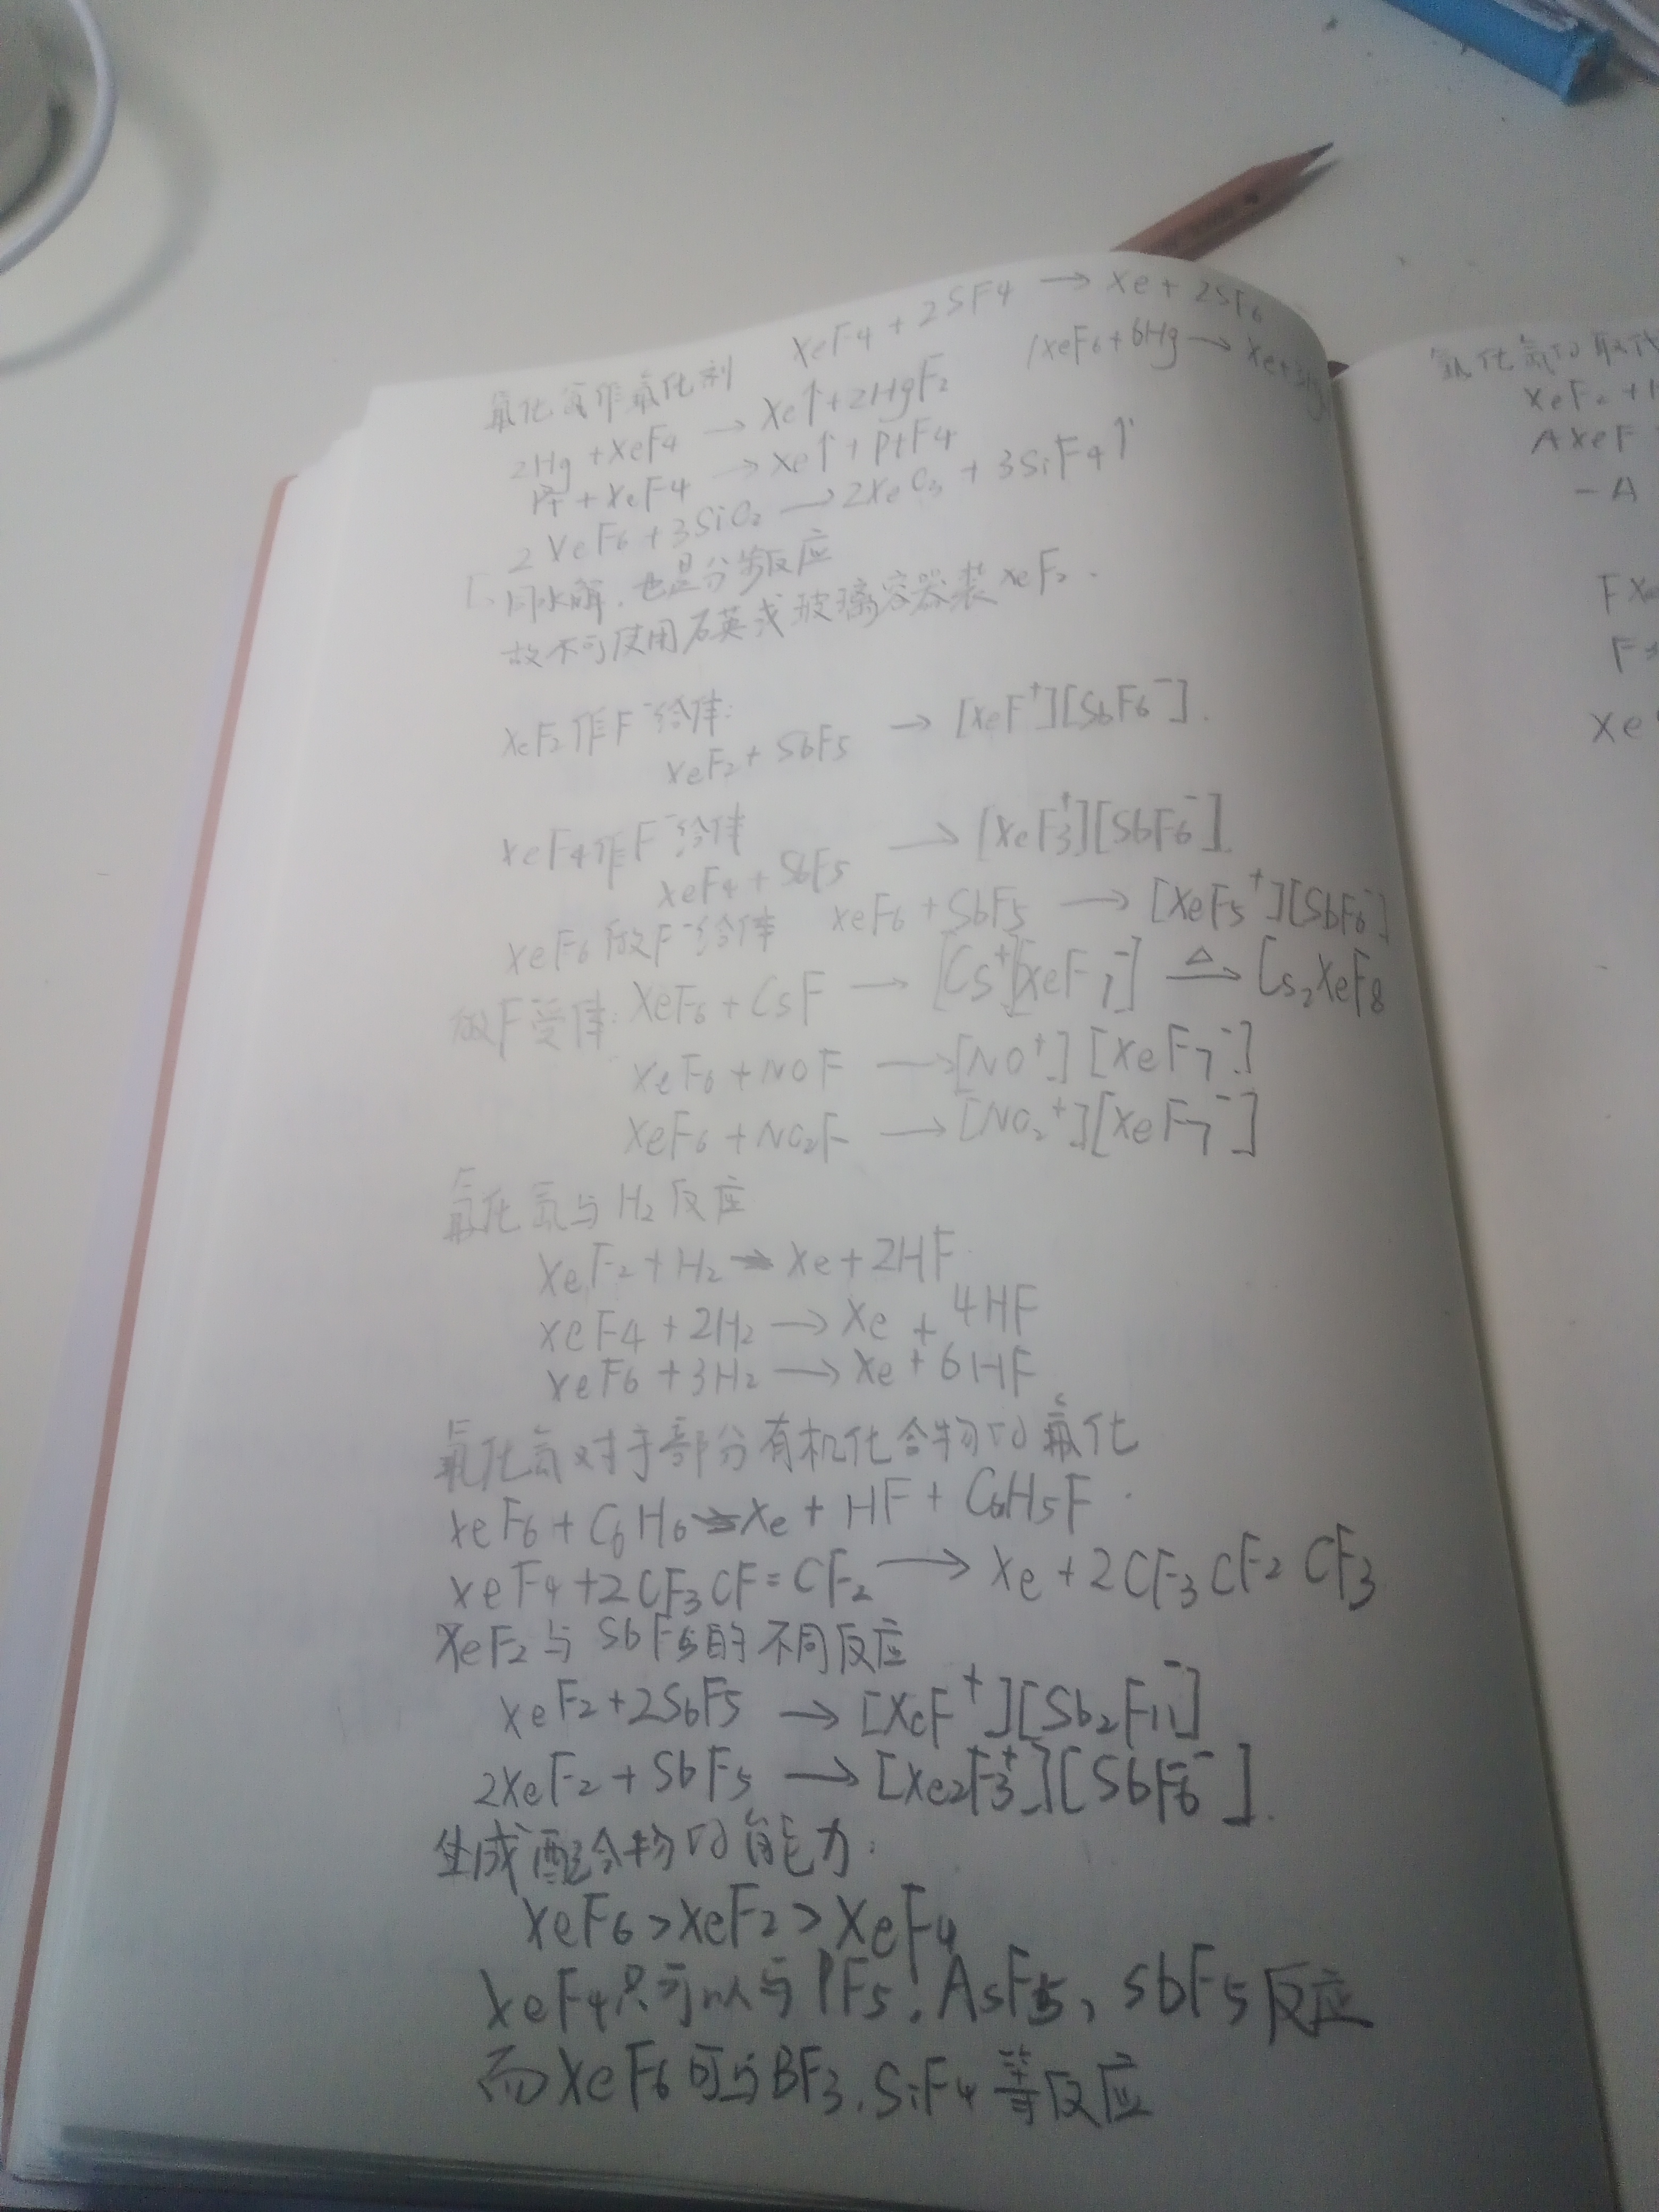 XeF4 + 2SF4 → Xe + 2SF6
氟化氙作氟化剂
XeF6 + 6Hg → Xe + 3Hg
2Hg + XeF4 → Xe↑ + 2HgF2
Pt + XeF4 → Xe↑ + PtF4
2XeF6 + 3SiO2 → 2XeO3 + 3SiF4↑
同水解,也是分步反应
故不可使用石英或玻璃容器装XeF2.
XeF2作F⁻给体:
XeF2 + SbF5 → [XeF⁺][SbF6⁻].
XeF4作F⁻给体
XeF4 + SbF5 → [XeF3⁺][SbF6⁻].
XeF6做F⁻给体 XeF6 + SbF5 → [XeF5⁺][SbF6⁻]
做F受体: XeF6 + CsF → [Cs⁺][XeF7⁻] △→ Cs2XeF8
XeF6 + NOF → [NO⁺][XeF7⁻]
XeF6 + NO2F → [NO2⁺][XeF7⁻]
氟化氙与H2反应
XeF2 + H2 → Xe + 2HF
XeF4 + 2H2 → Xe + 4HF
XeF6 + 3H2 → Xe + 6HF
氟化氙对于部分有机化合物的氟化
XeF6 + C6H6 → Xe + HF + C6H5F.
XeF4 + 2CF3CF=CF2 → Xe + 2CF3CF2CF3
XeF2与SbF5的不同反应
XeF2 + 2SbF5 → [XeF⁺][Sb2F11⁻]
2XeF2 + SbF5 → [Xe2F3⁺][SbF6⁻].
生成配合物的能力:
XeF6 > XeF2 > XeF4
XeF4只可以与PF5、AsF5、SbF5反应
而XeF6可与BF3、SiF4等反应
XeF2 +
AXeF
- A
F
Xe